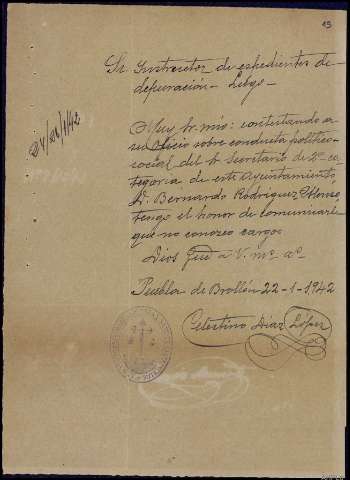 19
Sr. Instructor de espedientes de
depuración - Lugo-
24/1/42
Muy Sr. mio: contestando a
su oficio sobre conducta politico-
social del Sr Secretario de 2ª ca-
tegoria de este Ayuntamiento
D. Bernardo Rodriguez Alonso,
tengo el honor de comunicarle
que no conozco cargo.
Dios gue a V. ms as
Puebla de Brollón 22-1-1942
Celestino Diaz López